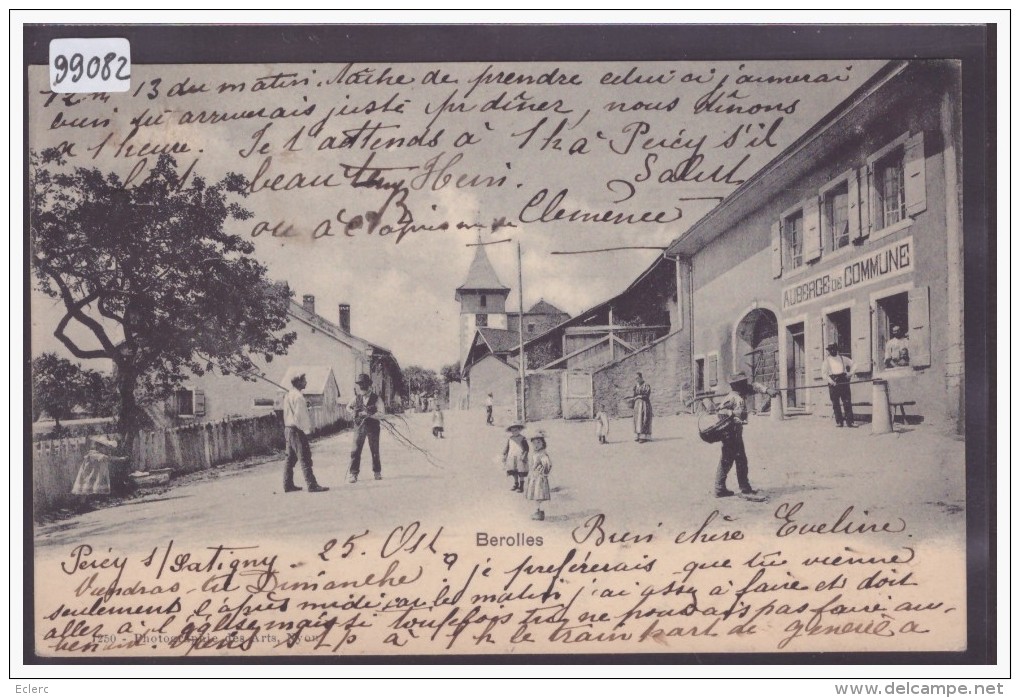 99082
12.m 13 du matin. Tâche de prendre celui ci j'aimerai
arriverais juste pr dîner, nous dînons
à 1 heure. Je t'attends à 1 h à Peicy s'il
beau temps Henri. Salut
ou à Clemence
AUBERGE DE COMMUNE
Berolles
Bien chère Eveline
Peicy s/Satigny 25. Oct
Viendras-tu Dimanche? je préférerais que tu vienne
seulement l'après midi car le matin j'ai assez à faire et doit
aller à l'église mais si toutefois tu ne pouvais pas faire au-
1250 - Photographie des Arts, Nyon
à 1 h le train part de Genève à
Eclerc
www.delcampe.net